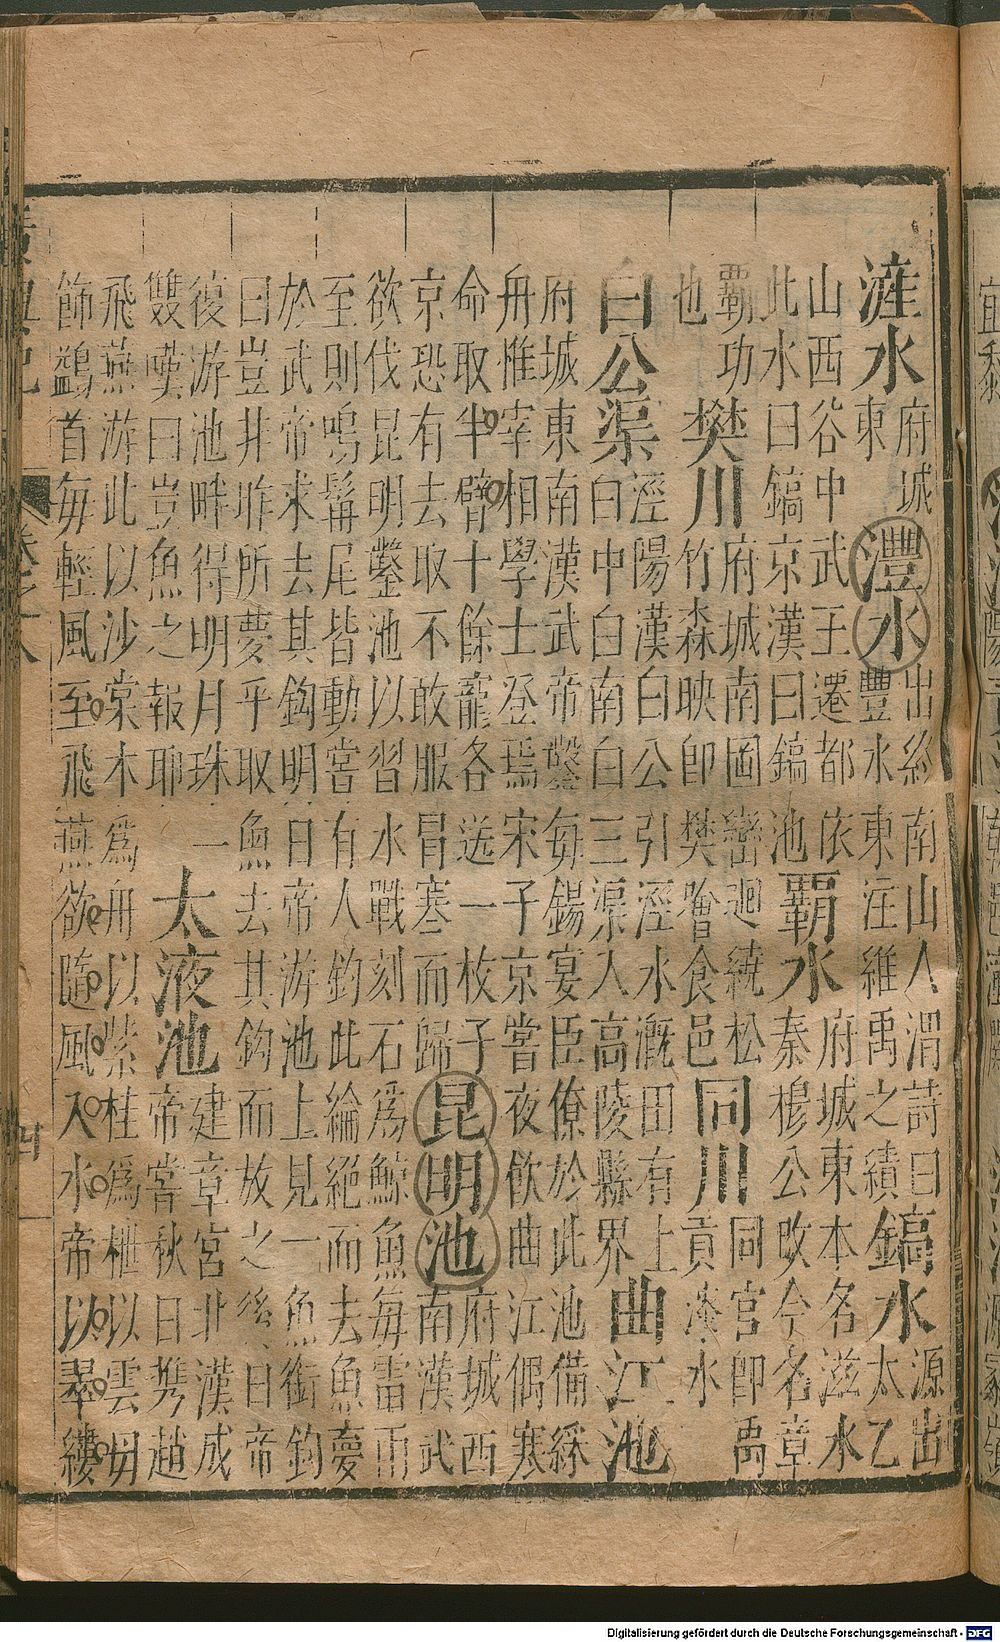 滻水府城東灃水出終南山入渭詩曰豐水東注維禹之績鎬水源出太乙
山西谷中武王遷都依此水曰鎬京漢曰鎬池覇水府城東本名滋水秦穆公改今名章
覇功也樊川府城南岡巒迴繞松竹森映即樊噲食邑同川同官即禹貢漆水
白公渠涇陽漢白公引涇水漑田有上白中白南白三渠入高陵縣界曲江池
府城東南漢武帝鑿每錫宴臣僚於此池備綵舟惟宰相學士登焉宋子京嘗夜飲曲江偶寒
命取半臂十餘寵各送一枚子京恐有去取不敢服冒寒而歸昆明池府城西南漢武
欲伐昆明鑿池以習水戰刻石爲鯨魚每雷雨至則鳴鬐尾皆動嘗有人釣此綸絕而去魚夢
於武帝求去其鈎明日帝游池上見一魚銜鈎曰豈非昨所夢乎取魚去其鈎而放之後日帝
復游池畔得明月珠一雙嘆曰豈魚之報耶太液池建章宮北漢成帝嘗秋日携趙
飛燕游此以沙棠木爲舟以紫桂爲枻以雲母飾鷁首每輕風至飛燕欲隨風入水帝以翠縷
卷之六
四
Digitalisierung gefördert durch die Deutsche Forschungsgemeinschaft - DFG